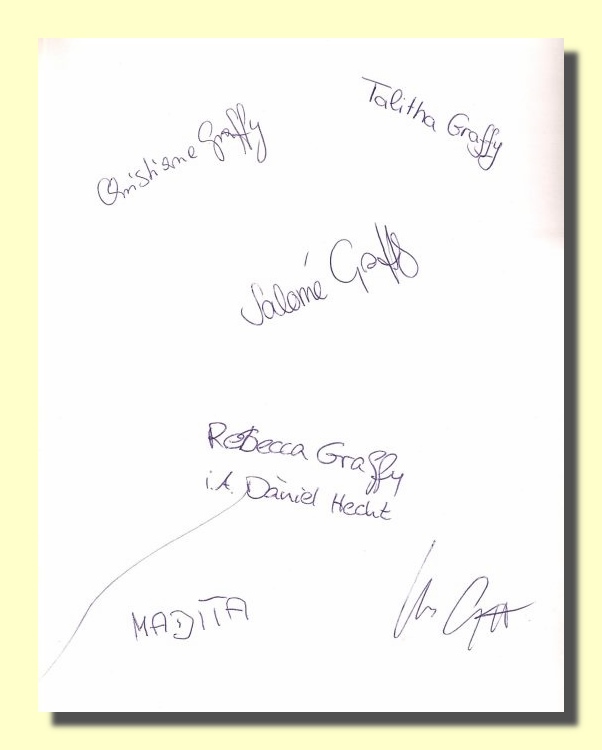 Talitha Graffy
Christiane Graffy
Salomé Graffy
Rebecca Graffy
i.A. Daniel Hecht
MADITA